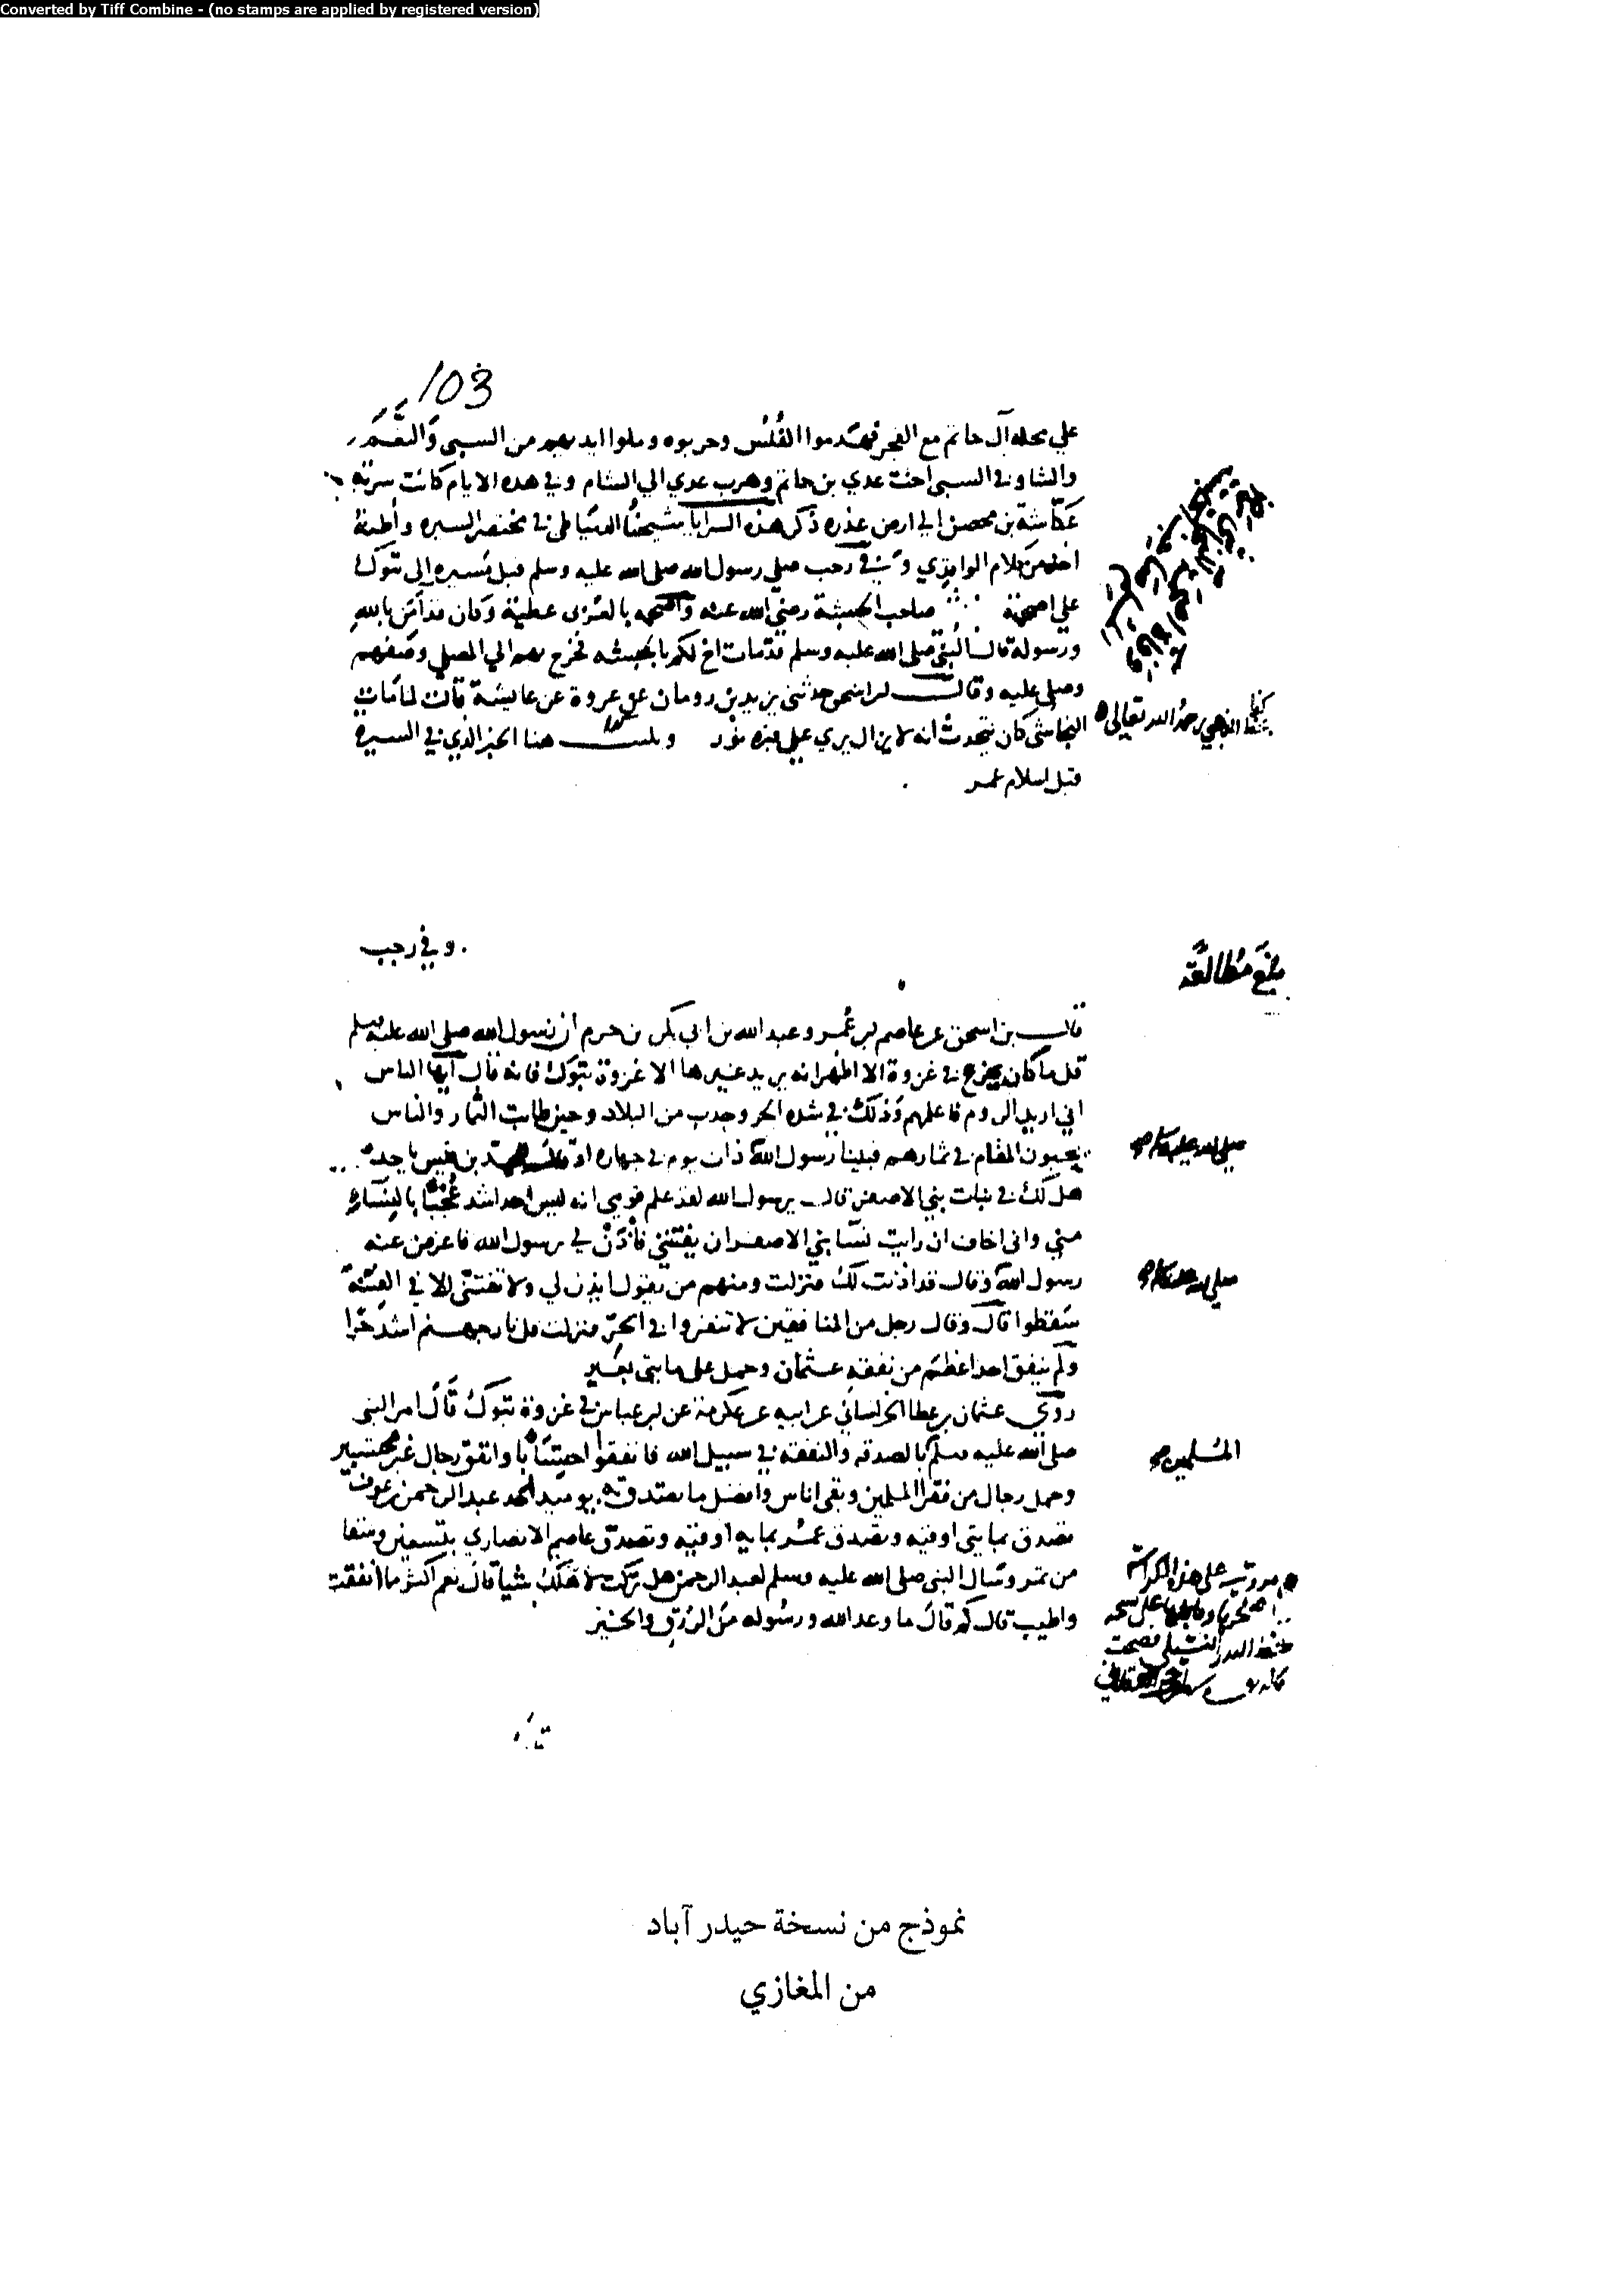 Converted by Tiff Combine - (no stamps are applied by registered version)
103
علي محله آل حاتم مع الفجر فهدموا الفُلُس وحربوه وملوا ايديهم من السبي والنعم
والشاء وفي السبي اخت عدي بن حاتم وهرب عدي الي الشام وفي هذه الايام كانت سرية
عكاشة بن محصن الي ارض عذره ذكر هذه السرايا شيخنا الدمياطي في مختصر السيره واظنه
اخذه من كلام الواقدي وفي رجب صلى رسول الله صلى الله عليه وسلم قبل مسيره الى تبوك
علي اصحمة صاحب الحبشة رضي الله عنه بالعربي عطية وكان قد آمن بالله
ورسوله قال النبي صلى الله عليه وسلم قد مات اخ لكم بالحبشه فخرج بهم الي المصلي وصفهم
وصلى عليه وقال ابن اسحق حدثني يزيد بن رومان عن عروة عن عايشة قالت لما مات
النجاشي كان يتحدث أنه لا يزال يري علي قبره نور هنا الخبر الذي في السيرة
قبل اسلام عمر
كتبها الذهبي رحمه الله تعالى
وفي رجب
بلغ مطالعة
قال بن اسحق عن عاصم بن عمر وعبد الله بن ابي بكر بن حزم أن رسول الله صلى الله عليه وسلم
قل ما كان يخرج في غزوة الا اظهر انه يريد غيرها الا غزوة تبوك فانه قال ايها الناس
اني اريد الروم فاعلمهم وذلك في شده الحر وجدب من البلاد وحين طابت الثمار والناس
يحبون المقام في ثمارهم فبينا رسول الله ذات يوم في جهازه اذ قال للجد بن قيس يا جد
صلى الله عليه وسلم
هل لك في بنات بني الاصفر قال يرسول الله لقد علم قومي انه ليس احد اشد عُجْبًا بالنساء
مني واني اخاف ان رايت نسا بني الاصفر ان يفتنني فأْذَنْ لي يرسول الله فاعرض عنه
رسول الله وقال قد اذنت لك فنزلت ومنهم من يقول ايذن لي ولا تفتني الا في الفتنة
صلى الله عليه وسلم
سقطوا قال وقال رجل من المنافقين لا تنفروا في الحر فنزلت قل نار جهنم اشد حرا
ولم ينفق احد اعظم من نفقة عثمان وحمل على مايتي بعير
روى عثمان بن عطا الخراساني عن ابيه عن عكرمة عن ابن عباس في غزوة تبوك قال امر النبي
صلى الله عليه وسلم بالصدقه والنفقه في سبيل الله فانفقوا احتسابا وانفق رجال غير محتسبين
المسلمين
وحمل رجال من فقرا المسلمين وبقي اناس وافضل ما تصدق به يوميد احد عبد الرحمن بن عوف
تصدق بمايتي اوقيه وتصدق عمر بمايه اوقيه وتصدق عاصم الانصاري بتسعين وسقا
من تمر وقال النبي صلى الله عليه وسلم لعبد الرحمن هل تركت لاهلك شيا قال نعم اكثر مما انفقت
واطيب قال كم قال ما وعد الله ورسوله من الرزق والخير
مررت على هذه الكراسة
نموذج من نسخة حيدر آباد
من المغازي